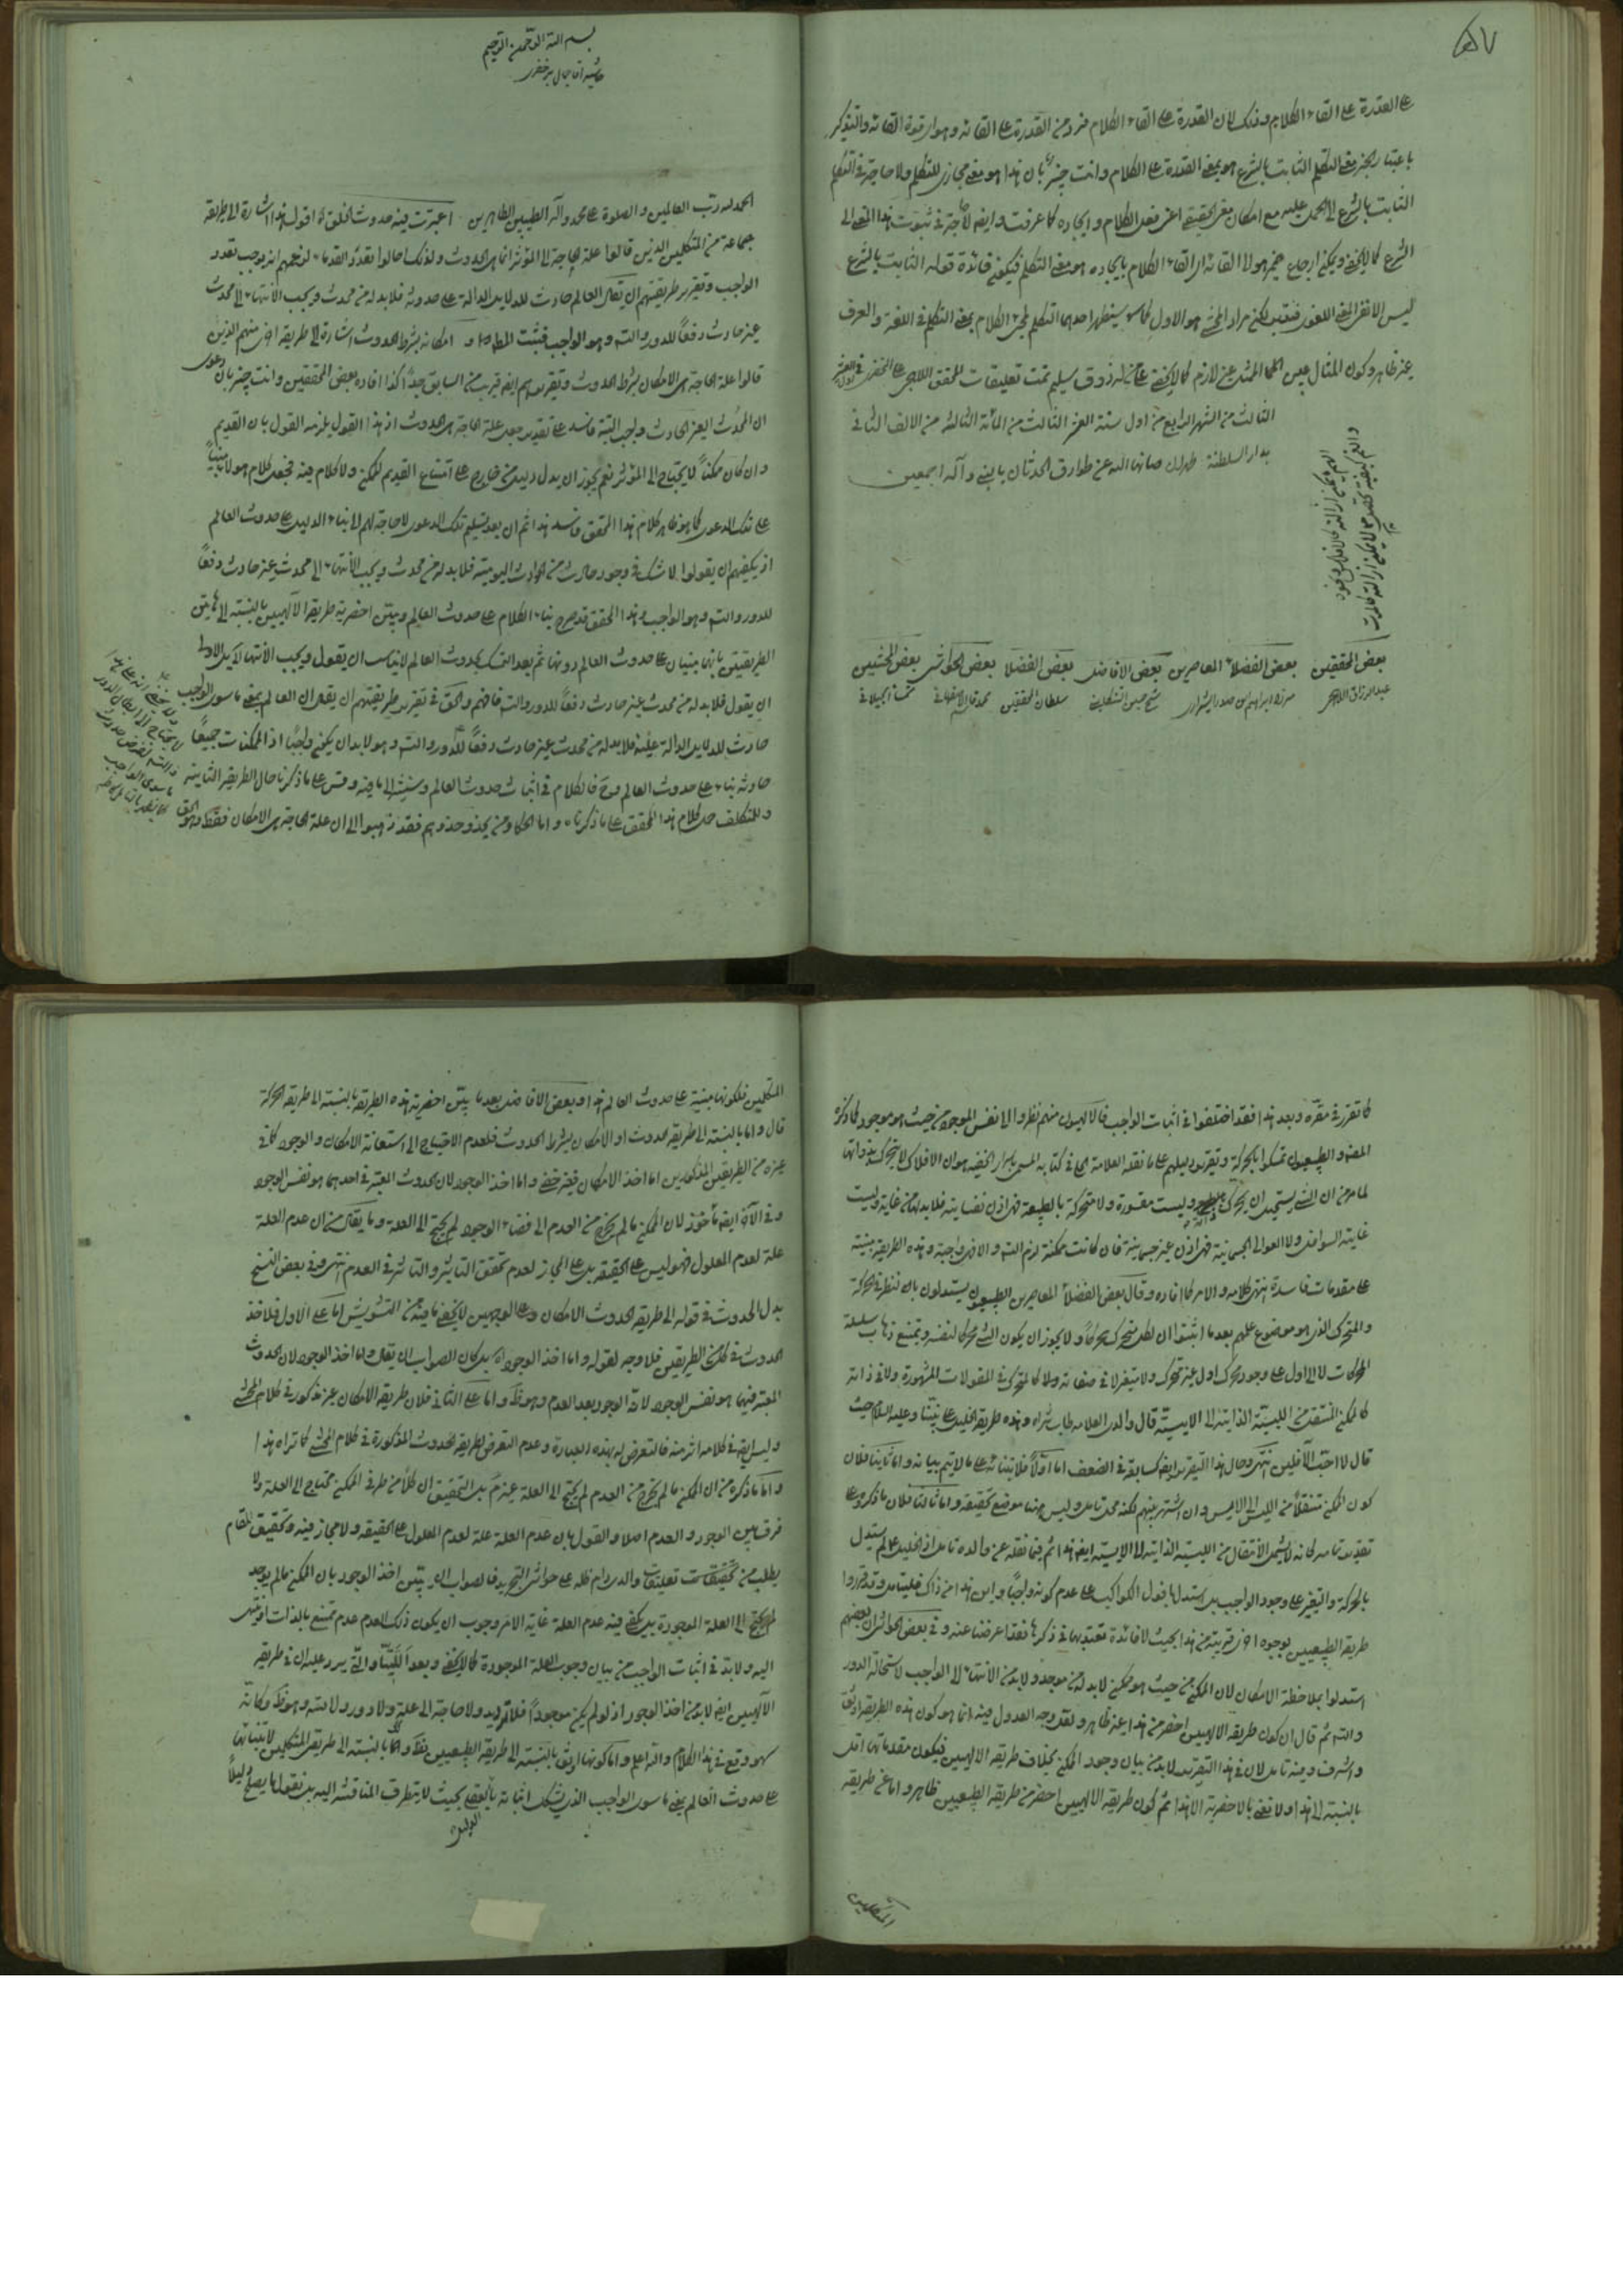 على القدرة على القاء الكلام وذلك لان القدرة على القاء الكلام فرد من القدرة على القائه وهو اى قوة القائه والتذكير
باعتبار الخبر معنى التكلم الثابت بالشرع هو بمعنى القدرة على الكلام وانت خبير بان هذا هو معنى مجازى للتكلم ولا حاجة فى التكلم
الثابت بالشرع الى الحمل عليه مع امكان معنى الحقيقى اعنى فعل الكلام وايجاده كما عرفت وايضا لا حاجة فى ثبوت هذا المعنى الى
الشرع كما لا يخفى ويمكن ارجاع ضمير هو الى القائه اى القاء الكلام بايجاده هو معنى التكلم فيكون فائدة قوله الثابت بالشرع
ليس الا تقرير المعنى اللغوى لكن مراد المحشى هو الاول التكلم الكلام بمعنى التكلم فى اللغة والعرف
غير ظاهر وكون المثال عين الممثل غير لازم كما لا يخفى على من له ذوق سليم تمت تعليقات المحقق اللاهجى على الخفرى
الثالث من الشهر الرابع من اول سنة العشر الثالث من المائة الثالثة من الالف الثانى
بدار السلطنة طهران صانها الله عن طوارق الحدثان بالنبى وآله اجمعين
بعض المحققين بعض الفضلاء المعاصرين بعض الافاضل بعض الفضلا بعض الحواشى بعض المحشين
عبد الرزاق اللاهجى ميرزا ابراهيم بن صدر الشيرازى شيخ حسين التنكابنى سلطان المحققين شمسا الجيلانى
بسم الله الرحمن الرحيم
حاشيه آقا جمال بر خفرى
الحمد لله رب العالمين والصلوة على محمد وآله الطيبين الطاهرين اعتبرت فيه حدوث الخلق اه اقول هذا اشارة الى طريقة
جماعة من المتكلمين الذين قالوا علة الحاجة الى المؤثر انما هى الحدوث ولذلك احالوا تعدد القدماء لزعمهم انه يوجب تعدد
الواجب وتقرير طريقتهم ان يقال العالم حادث للدلايل الدالة على حدوثه فلا بد له من محدث ويجب الانتهاء الى محدث
غير حادث دفعاً للدور والتسلسل وهو الواجب فيثبت المطلوب او امكانه بشرط الحدوث اشارة الى طريقة اخرى منهم الذين
قالوا علة الحاجة هى الامكان بشرط الحدوث وتقريرهم ايضا قريب من السابق جداً كذا افاده بعض المحققين وانت خبير بان دعوى
ان المحدث الغير الحادث واجب البتة فاسد على تقدير جعل علة الحاجة هى الحدوث اذ هذا القول يلزمه القول بان القديم
وان كان ممكناً لا يحتاج الى المؤثر نعم يجوز ان يدل دليل من خارج على امتناع القديم الممكن ولا كلام فيه فجعل كلام هؤلاء مبنياً
على تلك الدعوى كما هو ظاهر كلام هذا المحقق فاسد هذا ثم ان بعد تسليم تلك الدعوى لا حاجة لهم الى بناء الدليل على حدوث العالم
اذ يكفيهم ان يقولوا لا شك فى وجود حادث من الحوادث اليومية فلا بد له من محدث ويجب الانتهاء الى محدث غير حادث دفعاً
للدور والتسلسل وهو الواجب وهذا المحقق قد صرح بناء الكلام على حدوث العالم وبين اخصرية طريقة الالهيين بالنسبة الى هاتين
الطريقتين بانها مبنيان على حدوث العالم دونها ثم بعد التمسك بحدوث العالم لا يناسب ان يقول ويجب الانتهاء بل الاولى
ان يقول فلا بد له من محدث غير حادث دفعاً للدور والتسلسل فافهم والحق فى تقرير طريقتهم ان يقال ان العالم بمعنى ما سوى الواجب
حادث للدلايل الدالة عليه فلا بد له من محدث غير حادث دفعاً للدور والتسلسل وهو لا بد ان يكون واجباً اذ الممكنات جميعاً
حادثة بناء على حدوث العالم وح فالكلام فى اثبات حدوث العالم وسنشير الى ما فيه وقس على ما ذكرنا حال الطريقة الثانية
وللتكلف حمل كلام هذا المحقق على ما ذكرناه واما الحكماء ومن يحذو حذوهم فقد ذهبوا الى ان علة الحاجة هى الامكان فقط وهو الحق
كما تقرر فى مقره وبعد هذا فقد اختلفوا فى اثبات الواجب فالالهيون منهم نظروا الى نفس الموجود من حيث هو موجود كما ذكره
المص والطبيعيون تمسكوا بالحركة وتقرير دليلهم على ما نقله العلامة الحلى فى كتابه المسمى باسرار الخفيه هو ان الافلاك لا تتحرك بذواتها
لما مر من ان الشئ يستحيل ان يحرك وليست مقسورة ولا متحركة بالطبيعة فهى اذن نفسانية فلا بد لها من غاية وليست
غايته السوافل ولا العوالى الجسمانية فهى اذن غير جسمانية فان كانت ممكنة لزم التسلسل والا فهى واجبة وهذه الطريقة مبنية
على مقدمات فاسدة انتهى كلامه والامر كما افاده وقال بعض الفضلا المعاصرين الطبيعيون يستدلون بان النظر فى الحركة
والمتحرك الذى هو موضوع علمهم بعدما اثبتوا ان لكل متحرك محركاً ولا يجوز ان يكون الشئ محركا لنفسه ويمتنع ذهاب سلسلة
المحركات لا الى اول على وجود محرك اول غير متحرك ولا متغير لا فى صفاته ولا كالمتحرك فى المقولات المشهورة ولا فى ذاته
كالممكن المنتقل من الليسية الذاتية الى الايسية قال والدى العلامة طاب ثراه وهذه طريقة الخليل على نبينا وعليه السلام حيث
قال لا احب الآفلين انتهى وحال هذا التقرير ايضا كسابقه فى الضعف اما اولاً فلابتنائه على ما لا يتم بيانه واما ثانيا فلان
كون الممكن منتقلاً من الليس الى الايس وان اشتهر بينهم لكنه محل تامل وليس هنا موضع تحقيقه واما ثالثا فلان ما ذكروه على
تقدير تمامه كانه لا يشمل الانتقال من الليسية الذاتية الى الايسية ايضا هذا ثم فيما نقله عن والده تامل اذ الخليل عليه السلام لم يستدل
بالحركة والتغير على وجود الواجب بل استدل بافول الكواكب على عدم كونه واجباً واين هذا من ذاك فليتامل وقد قرروا
طريقة الطبيعيين بوجوه اخرى قريبة من هذا بحيث لا فائدة معتد بها فى ذكرها فلذا اعرضنا عنه وفى بعض الحواشى ان بعضهم
استدلوا بملاحظة الامكان لان الممكن من حيث هو ممكن لا بد له من موجد ولا بد من الانتهاء الى الواجب لاستحالة الدور
والتسلسل ثم قال ان كون طريقة الالهيين اخصر من هذا غير ظاهر ولعل وجه العدول فيه انما هو كون هذه الطريقة اوثق
واشرف وفيه تامل لان فى هذا التقرير لا بد من بيان وجود الممكن بخلاف طريقة الالهيين فيكون مقدماتها اقل
بالنسبة الى هذا ولا نعنى بالاخصرية الا هذا ثم كون طريقة الالهيين اخصر من طريقة الطبيعيين ظاهر واما من طريقة
المتكلمين
المتكلمين فلكونها مبنية على حدوث العالم هذا وبعض الافاضل بعدما بين اخصرية هذه الطريقة بالنسبة الى طريقة الحركة
قال واما بالنسبة الى طريقة الحدوث او الامكان بشرط الحدوث فلعدم الاحتياج الى استعانة الامكان والوجود كما فى
غيره من الطريقين المذكورين اما اخذ الامكان فغير خفى واما اخذ الوجود لان الحدوث المعتبر فى احدهما هو نفس الوجود
وفى الآخر ايضا مأخوذ لان الممكن ما لم يخرج من العدم الى فضاء الوجود لم يحتج الى العلة وما يقال من ان عدم العلة
علة لعدم المعلول فهو ليس على الحقيقة بل على المجاز لعدم تحقق التاثير والتاثر فى العدم انتهى وفى بعض النسخ
بدل الحدوث فى قوله الى طريقة الحدوث الامكان وعلى الوجهين لا يخفى ما فيه من التشويش اما على الاول فلاخذ
الحدوث فى كل من الطريقين فلا وجه لقوله واما اخذ الوجود اه بل كان الصواب ان يقال واما اخذ الوجود لان الحدوث
المعتبر فيهما هو نفس الوجود لانه الوجود بعد العدم وهو ظ واما على الثانى فلان طريقة الامكان غير مذكور فى كلام المحشى
وليس ايضا فى كلامه اثر منه فالتعرض له بهذه العبارة وعدم التعرض لطريقة الحدوث المذكورة فى كلام المحشى كما تراه هذا
واما ما ذكره من ان الممكن ما لم يخرج من العدم لم يحتج الى العلة غير مر بل التحقيق ان كلاً من طرفى الممكن محتاج الى العلة ولا
فرق بين الوجود والعدم اصلا والقول بان عدم العلة علة لعدم المعلول على الحقيقة ولا مجاز فيه وتحقيق المقام
يطلب من تحقيقات تعليقات والدى دام ظله على حواشى التجريد فالصواب ان يبين اخذ الوجود بان الممكن ما لم يوجد
لم يحتج الى العلة الموجودة بل يكفى فيه عدم العلة غاية الامر وجوب ان يكون ذلك العدم عدم ممتنع بالذات او ينتهى
اليه ولا بد فى اثبات الواجب من بيان وجوب العلة الموجودة كما لا يخفى وبعد اللتيا والتى يرد عليه ان فى طريقة
الالهيين ايضا لا بد من اخذ الوجود اذ لو لم يكن موجوداً فلا ترديد ولا حاجة الى علة ولا دور ولا تسلسل وهو ظ وكانه
سهو وقع فى هذا الكلام والله اعلم واما كونها اوثق بالنسبة الى طريقة الطبيعيين فظ واما بالنسبة الى طريقة المتكلمين لابتنائها
على حدوث العالم بمعنى ما سوى الواجب الذى يشكل اثباته بالعقل بحيث لا يتطرق المناقشة اليه بل نقول ما يصلح دليلاً